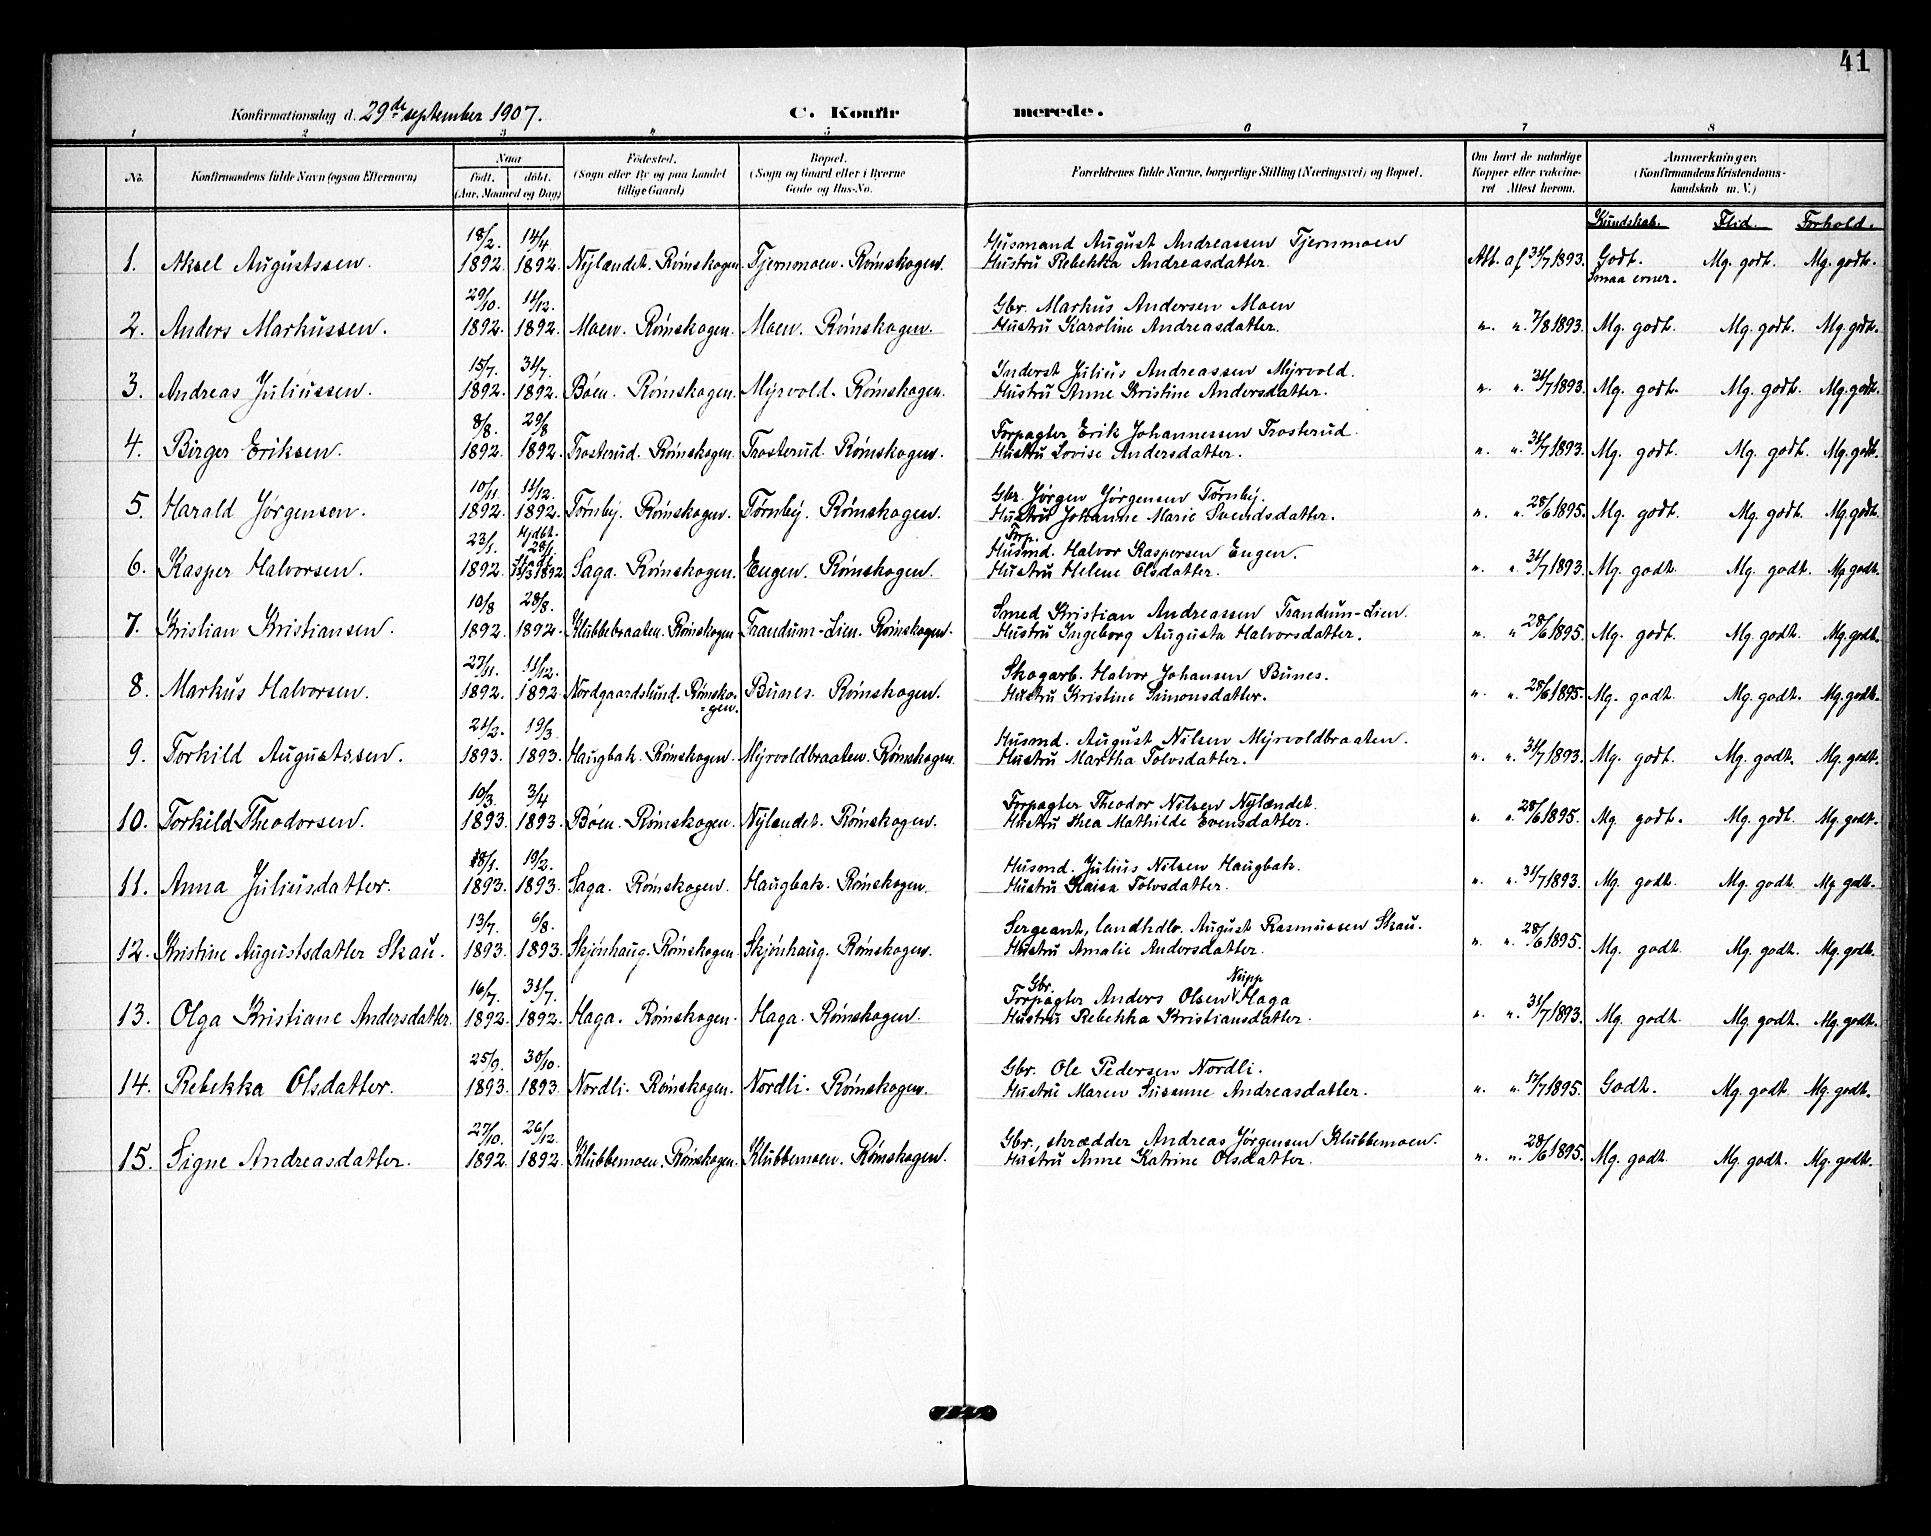 41
Konfirmationsdag d. 29de september 1907. C. Konfirmerede.
1 2 3 4 5 6 7 8
No. Konfirmandens fulde Navn (ogsaa Efternavn) Naar Født. døbt. (Aar, Maaned og Dag) Fødested. (Sogn eller By og paa Landet tillige Gaard) Bopæl. (Sogn og Gaard eller i Byerne Gade og Hus-No. Forældrenes fulde Navne, borgerlige Stilling (Næringsvei) og Bopæl. Om havt de naturlige Kopper eller vakcineret. Attest herom. Anmærkninger. (Konfirmandens Kristendomskundskab m. V.)
Kundskab. Flid. Forhold.
18/2. 14/4 Husmand August Andreassen Tjernmoen
1. Aksel Augustssen. 1892. 1892. Nylandet. Rømskogen. Tjernmoen. Rømskogen. Hustru Rebekka Andreasdatter. Att. af 31/7 1893. Godt. Mg. godt. Mg. godt.
Smaa evner.
29/10. 11/12. Gbr. Markus Andersen Moen
2. Anders Markussen. 1892. 1892. Moen. Rømskogen. Moen. Rømskogen. Hustru Karoline Andreasdatter. " " 7/8 1893. Mg. godt. Mg. godt. Mg. godt.
15/7. 31/7. Inderst Julius Andreassen Myrvold.
3. Andreas Juliussen. 1892. 1892. Bøen. Rømskogen. Myrvold. Rømskogen. Hustru Anne Kristine Andersdatter. " " 31/7 1893. Mg. godt. Mg. godt. Mg. godt.
8/8. 29/8 Forpagter Erik Johannessen Trosterud.
4. Birger Eriksen. 1892. 1892. Trosterud. Rømskogen. Trosterud. Rømskogen. Hustru Lovise Andersdatter. " " 31/7 1893. Mg. godt. Mg. godt. Mg. godt.
10/11. 11/12. Gbr. Jørgen Jørgensen Tørnby.
5. Harald Jørgensen. 1892. 1892. Tørnby. Rømskogen. Tørnby. Rømskogen. Hustru Johanne Marie Svendsdatter. " " 28/6 1895. Mg. godt. Mg. godt. Mg. godt.
23/1. Hjdbt. 28/1. Forp.
Husmd. Halvor Kaspersen Eugen.
6. Kasper Halvorsen. 1892. 13/3 1892. Saga. Rømskogen. Eugen. Rømskogen. Hustru Helene Olsdatter. " " 31/7 1893. Mg. godt. Mg. godt. Mg godt.
10/8 28/8. Smed Kristian Andreassen Trandum-Lien.
7. Kristian Kristiansen. 1892. 1892. Klubbebraaten. Rømskogen. Trandum-Lien. Rømskogen. Hustru Ingeborg Augusta Halvorsdatter. " " 28/6 1895. Mg. godt. Mg. godt. Mg. godt.
27/11. 11/12. Skogarb. Halvor Johansen Bunes.
8. Markus Halvorsen. 1892. 1892. Nordgaardslund. Rømsko- Bunes. Rømskogen. Hustru Kristine Simonsdatter. " " 28/6 1895. Mg. godt. Mg. godt. Mg. godt.
=gen.
21/2. 19/3. Husmd. August Nilsen Myrvoldbraaten.
9. Torkild Augustssen. 1893. 1893. Haugbak. Rømskogen. Myrvoldbraaten. Rømskogen. Hustru Martha Tolvsdatter. " " 31/7 1893. Mg. godt. Mg. godt. Mg. godt.
10/3. 3/4 Forpagter Theodor Nilsen Nylandet.
10. Torkild Theodorsen. 1893. 1893. Bøen. Rømskogen. Nylandet. Rømskogen. Hustru Thea Mathilde Evensdatter. " " 28/6 1895. Mg. godt. Mg. godt. Mg. godt.
18/1. 19/2. Husmd. Julius Nilsen Haugbak.
11. Anna Juliusdatter. 1893. 1893. Saga. Rømskogen. Haugbak. Rømskogen. Hustru Kaisa Tolvsdatter. " " 31/7 1893. Mg. godt. Mg. godt. Mg godt.
13/7. 6/8. Sergeant, landhdlr. August Rasmussen Skau.
12. Kristine Augustsdatter Skau. 1893. 1893. Skjønhaug. Rømskogen. Skjønhaug. Rømskogen. Hustru Amalie Andersdatter. " " 28/6 1895. Mg. godt. Mg. godt. Mg. godt.
16/7. 31/7. Gbr. Nupp
Forpagter Anders Olsen Haga
13. Olga Kristiane Andersdatter. 1892. 1892. Haga. Rømskogen. Haga. Rømskogen. Hustru Rebekka Kristiansdatter. " " 31/7 1893. Mg. godt. Mg. godt. Mg. godt.
25/9. 30/10. Gbr. Ole Pedersen Nordli.
14. Rebekka Olsdatter. 1893. 1893. Nordli. Rømskogen. Nordli. Rømskogen. Hustru Maren Susanne Andreasdatter. " " 17/7 1895. Godt. Mg. godt. Mg. godt.
27/10. 26/12. Gbr., skrædder Andreas Jørgensen Klubbemoen.
15. Signe Andreasdatter. 1892. 1892. Klubbemoen. Rømskogen. Klubbemoen. Rømskogen. Hustru Anne Katrine Olsdatter. " " 28/6 1895. Mg. godt. Mg. godt. Mg. godt.